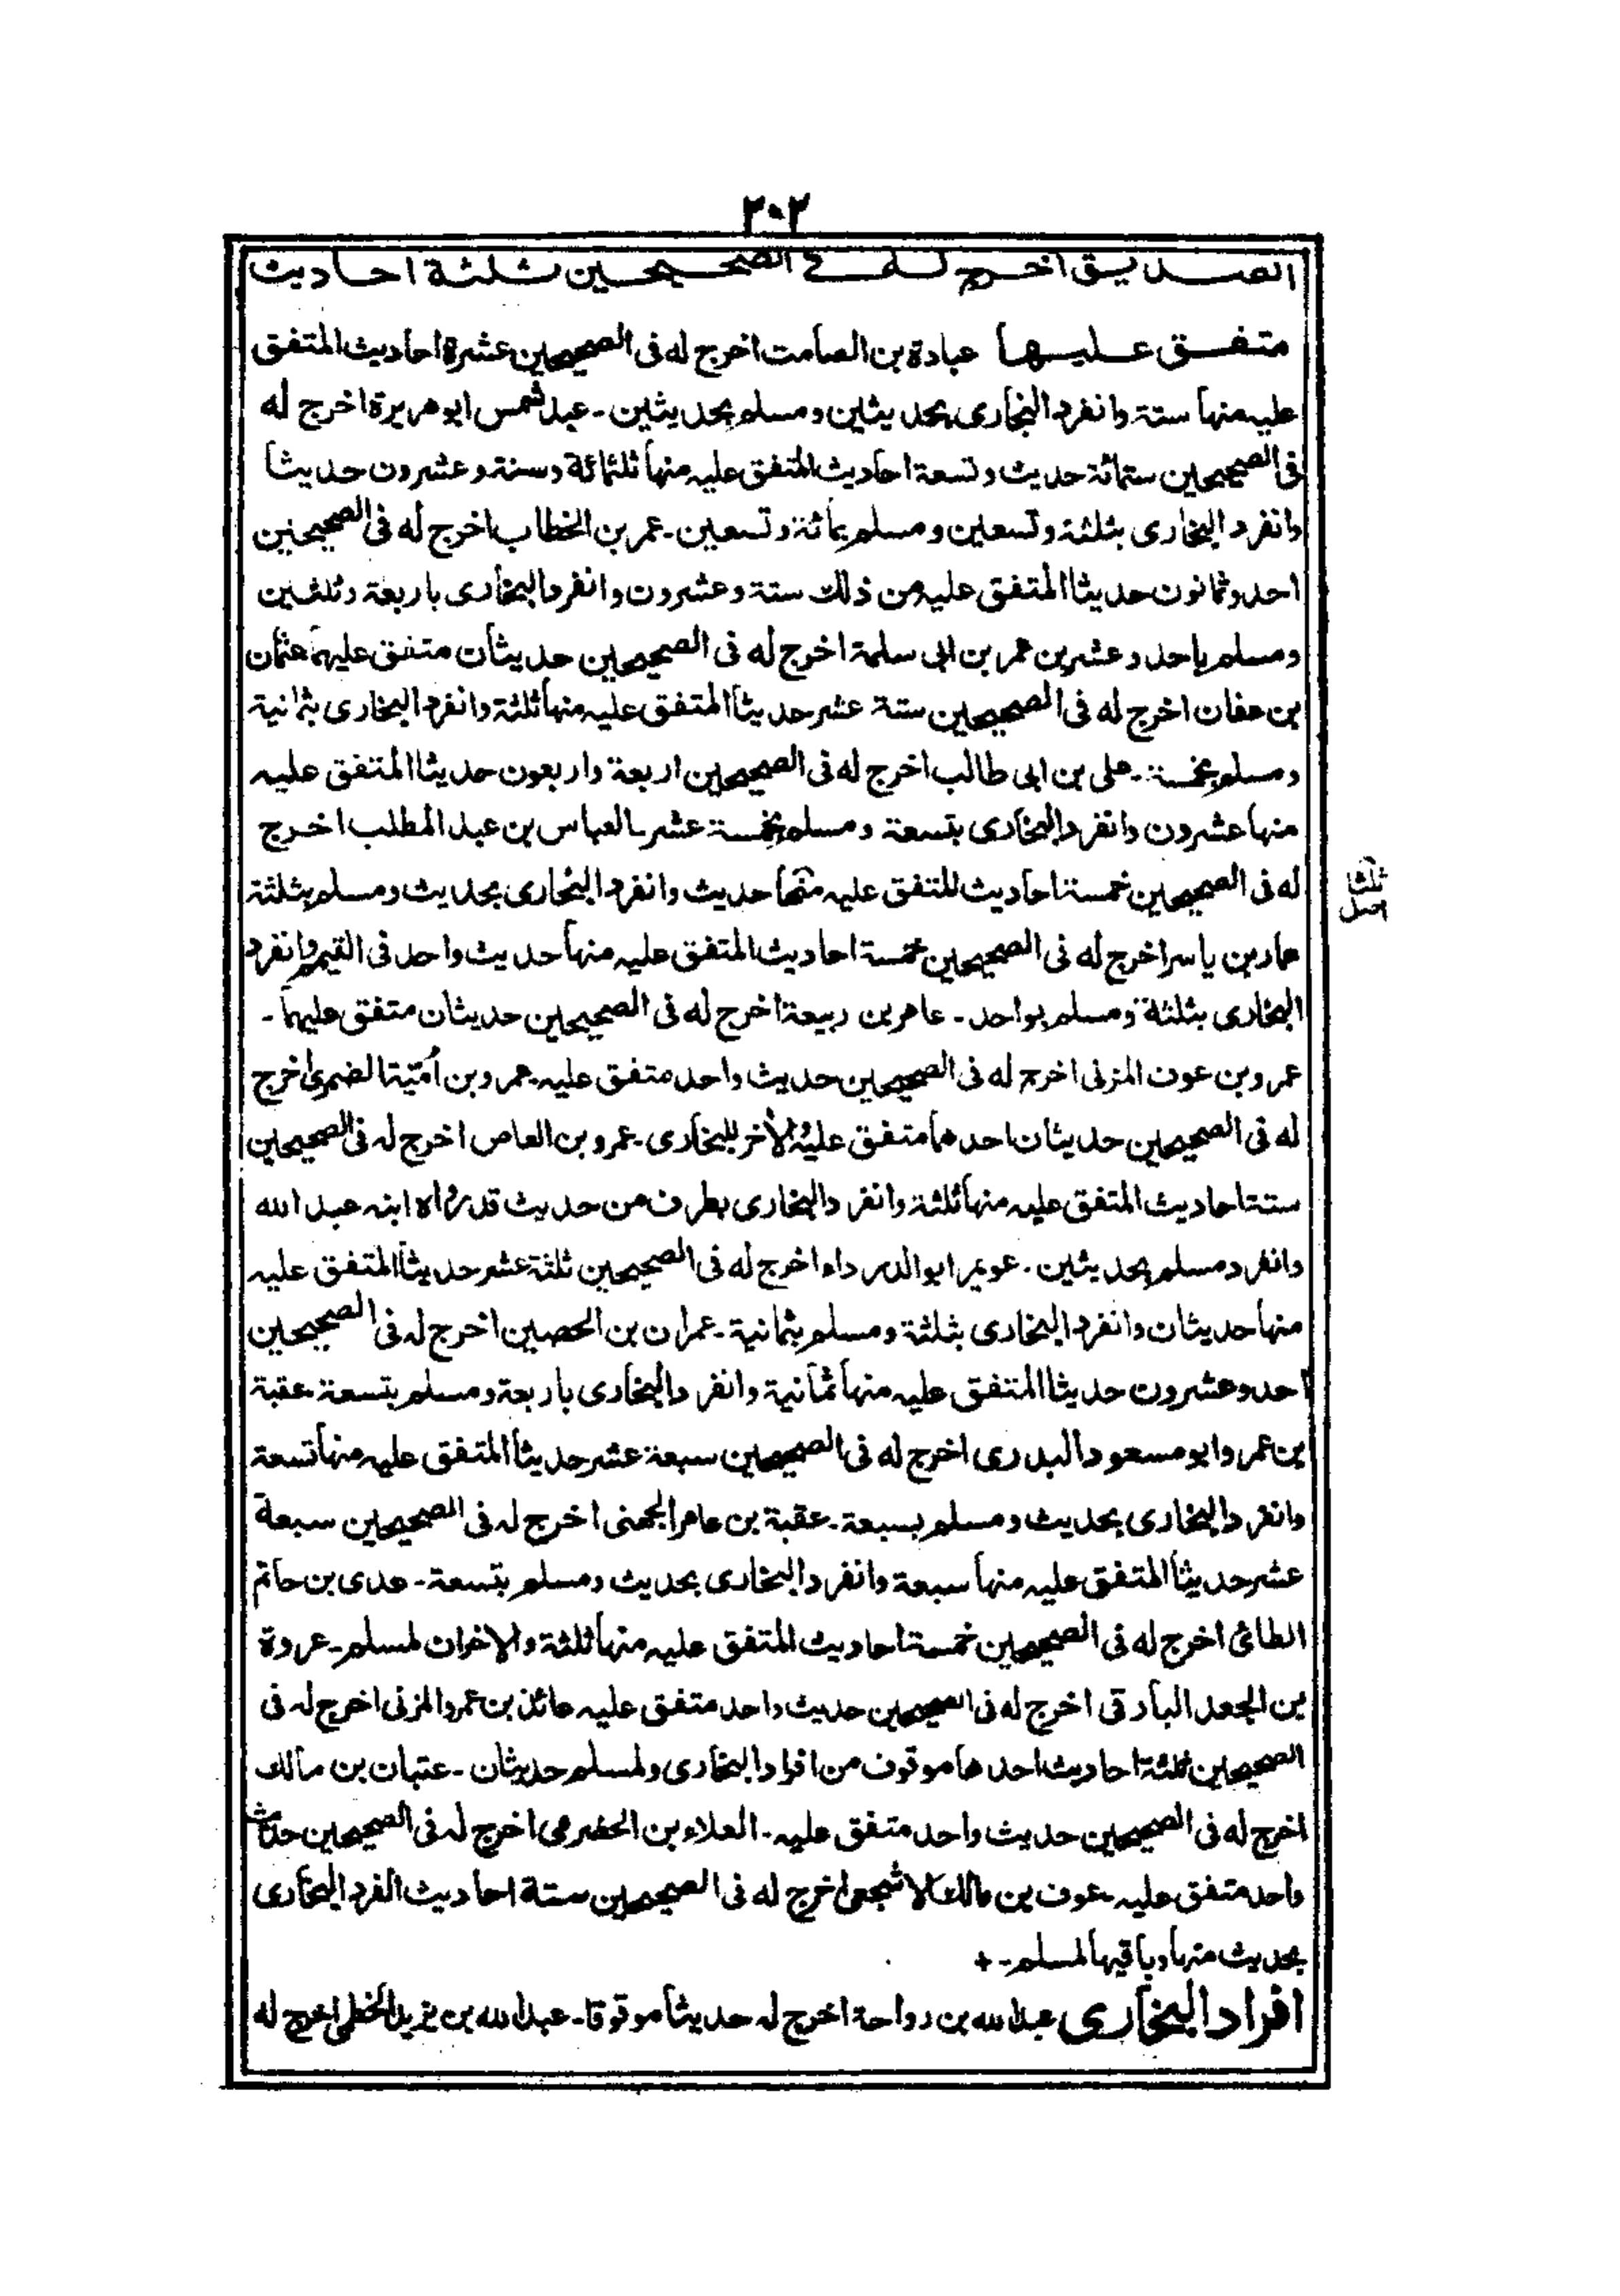 ٢٠٢
الصديق اخرج له في الصحيحين ثلثة احاديث
متفق عليها عبادة بن الصامت اخرج له فى الصحيحين عشرة احاديث المتفق
عليه منها ستة وانفرد البخارى بحديثين ومسلم بحديثين ـ عبد شمس ابو هريرة اخرج له
فى الصحيحين ستمائة حديث وتسعة احاديث المتفق عليه منها ثلثمائة وستة وعشرون حديثا
وانفرد البخارى بثلثة وتسعين ومسلم بمائة وتسعين ـ عمر بن الخطاب اخرج له فى الصحيحين
احد وثمانون حديثا المتفق عليه من ذلك ستة وعشرون وانفرد البخارى باربعة وثلثين
ومسلم باحد وعشرين عمر بن ابى سلمة اخرج له فى الصحيحين حديثان متفق عليهما عثمان
بن عفان اخرج له فى الصحيحين ستة عشر حديثا المتفق عليه منها ثلثة وانفرد البخارى بثمانية
ومسلم بخمسة ـ على بن ابى طالب اخرج له فى الصحيحين اربعة واربعون حديثا المتفق عليه
منها عشرون وانفرد البخارى بتسعة ومسلم بخمسة عشر ـ العباس بن عبد المطلب اخرج
له فى الصحيحين خمسة احاديث المتفق عليه منها حديث وانفرد البخارى بحديث ومسلم بثلثة
ثلثا
اصل
عمار بن ياسر اخرج له فى الصحيحين خمسة احاديث المتفق عليه منها حديث واحد فى التيمم وانفرد
البخارى بثلثة ومسلم بواحد ـ عامر بن ربيعة اخرج له فى الصحيحين حديثان متفق عليهما ـ
عمرو بن عوف المزنى اخرج له فى الصحيحين حديث واحد متفق عليه ـ عمرو بن اُمَيّة الضمرى اخرج
له فى الصحيحين حديثان احدهما متفق عليه والاخر للبخارى ـ عمرو بن العاص اخرج له فى الصحيحين
ستة احاديث المتفق عليه منها ثلثة وانفرد البخارى بطرف من حديث قد رواه ابنه عبد الله
وانفرد مسلم بحديثين ـ عويمر ابو الدرداء اخرج له فى الصحيحين ثلثة عشر حديثا المتفق عليه
منها حديثان وانفرد البخارى بثلثة ومسلم بثمانية ـ عمران بن الحصين اخرج له فى الصحيحين
احد وعشرون حديثا المتفق عليه منها ثمانية وانفرد البخارى باربعة ومسلم بتسعة ـ عقبة
بن عمر وابو مسعود البدرى اخرج له فى الصحيحين سبعة عشر حديثا المتفق عليه منها تسعة
وانفرد البخارى بحديث ومسلم بسبعة ـ عقبة بن عامر الجهنى اخرج له فى الصحيحين سبعة
عشر حديثا المتفق عليه منها سبعة وانفرد البخارى بحديث ومسلم بتسعة ـ عدى بن حاتم
الطائى اخرج له فى الصحيحين خمسة احاديث المتفق عليه منها ثلثة والاخران لمسلم ـ عروة
بن الجعد البارقى اخرج له فى الصحيحين حديث واحد متفق عليه عائذ بن عمرو المزنى اخرج له فى
الصحيحين ثلثة احاديث احدها موقوف من افراد البخارى ولمسلم حديثان ـ عتبان بن مالك
اخرج له فى الصحيحين حديث واحد متفق عليه ـ العلاء بن الحضرمى اخرج له فى الصحيحين حديث
واحد متفق عليه ـ عوف بن مالك الاشجعى اخرج له فى الصحيحين ستة احاديث انفرد البخارى
بحديث منها وباقيها لمسلم ـ +
افراد البخارى عبد الله بن رواحة اخرج له حديثا موقوفا ـ عبد الله بن يزيد الخطمى اخرج له